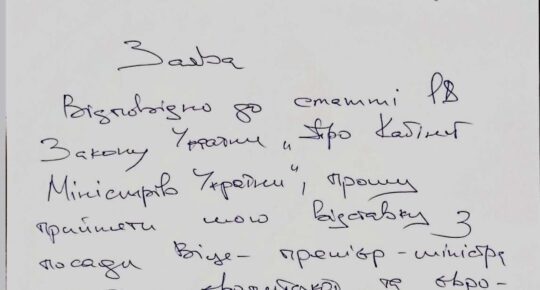 Заява
Відповідно до статті 18
Закону України „Про Кабінет
Міністрів України“, прошу
прийняти мою відставку з
посади Віце-прем'єр-міністра
європейської та євро-